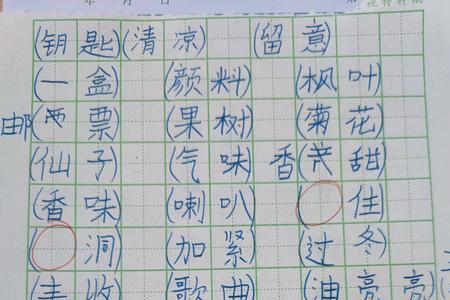 年 月 日
(钥匙)(清凉) (留意)
(一盒) (颜料) (枫叶)
邮( 票) (果树) (菊花)
(仙子) (气味) 香( 甜)
(香味) (喇叭) ( 佳)
( 洞) (加紧) (过冬)
(丰收) (歌曲) (油亮亮)